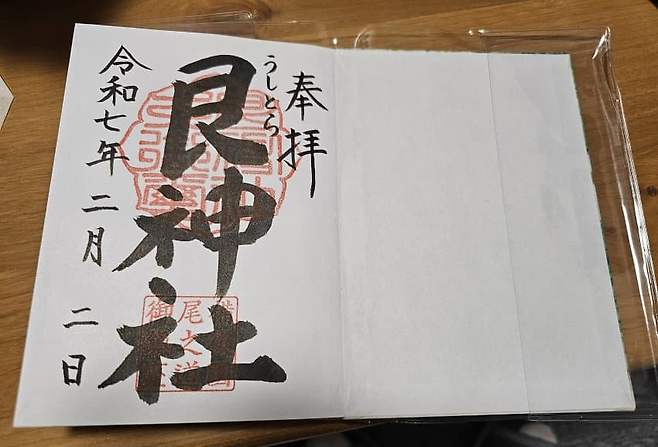 奉拝
うしとら
艮神社
令和七年 二月 二日